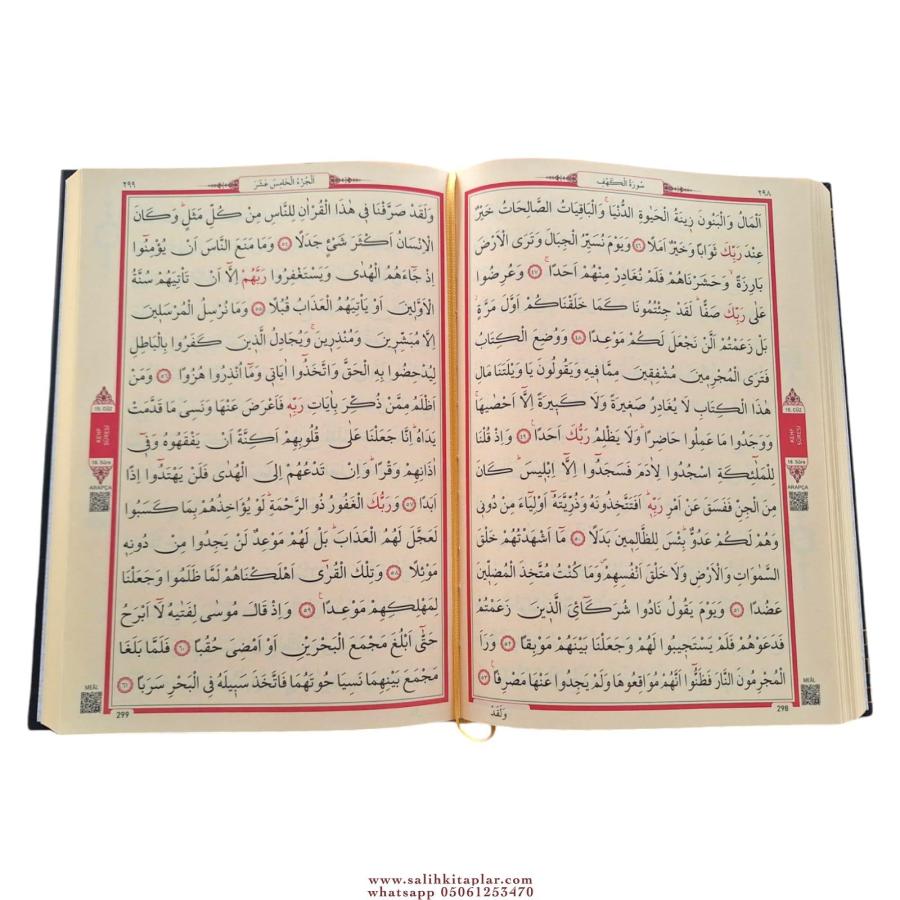 سُورَةُ الْكَهْفِ
٢٩٨
اَلْمَالُ وَالْبَنُونَ زِينَةُ الْحَيٰوةِ الدُّنْيَاۚ وَالْبَاقِيَاتُ الصَّالِحَاتُ خَيْرٌ
عِنْدَ رَبِّكَ ثَوَاباً وَخَيْرٌ اَمَلاً ٤٦ وَيَوْمَ نُسَيِّرُ الْجِبَالَ وَتَرَى الْاَرْضَ
بَارِزَةًۙ وَحَشَرْنَاهُمْ فَلَمْ نُغَادِرْ مِنْهُمْ اَحَداًۚ ٤٧ وَعُرِضُوا
عَلٰى رَبِّكَ صَفاًّۜ لَقَدْ جِئْتُمُونَا كَمَا خَلَقْنَاكُمْ اَوَّلَ مَرَّةٍۘ
بَلْ زَعَمْتُمْ اَلَّنْ نَجْعَلَ لَكُمْ مَوْعِداً ٤٨ وَوُضِعَ الْكِتَابُ
فَتَرَى الْمُجْرِمِينَ مُشْفِقِينَ مِمَّا فِيهِ وَيَقُولُونَ يَا وَيْلَتَنَا مَالِ
هٰذَا الْكِتَابِ لَا يُغَادِرُ صَغِيرَةً وَلَا كَبِيرَةً اِلَّٓا اَحْصٰيهَاۚ
وَوَجَدُوا مَا عَمِلُوا حَاضِراًۜ وَلَا يَظْلِمُ رَبُّكَ اَحَداً۟ ٤٩ وَاِذْ قُلْنَا
لِلْمَلٰٓئِكَةِ اسْجُدُوا لِاٰدَمَ فَسَجَدُٓوا اِلَّٓا اِبْلِيسَۜ كَانَ
مِنَ الْجِنِّ فَفَسَقَ عَنْ اَمْرِ رَبِّهِۜ اَفَتَتَّخِذُونَهُ وَذُرِّيَّتَهُٓ اَوْلِيَٓاءَ مِنْ دُونِي
وَهُمْ لَكُمْ عَدُوٌّۜ بِئْسَ لِلظَّالِمِينَ بَدَلاً ٥٠ مَٓا اَشْهَدْتُهُمْ خَلْقَ
السَّمٰوَاتِ وَالْاَرْضِ وَلَا خَلْقَ اَنْفُسِهِمْۖ وَمَا كُنْتُ مُتَّخِذَ الْمُضِلِّينَ
عَضُداً ٥١ وَيَوْمَ يَقُولُ نَادُوا شُرَكَٓاءِيَ الَّذِينَ زَعَمْتُمْ
فَدَعَوْهُمْ فَلَمْ يَسْتَجِيبُوا لَهُمْ وَجَعَلْنَا بَيْنَهُمْ مَوْبِقاً ٥٢ وَرَاَ
الْمُجْرِمُونَ النَّارَ فَظَنُّٓوا اَنَّهُمْ مُوَاقِعُوهَا وَلَمْ يَجِدُوا عَنْهَا مَصْرِفاً۟ ٥٣
وَلَقَدْ
298
15. CÜZ
KEHF SÛRESİ
18. Sûre
ARAPÇA
MEÂL
٢٩٩
اَلْجُزْءُ الْخَامِسَ عَشَرَ
وَلَقَدْ صَرَّفْنَا فِي هٰذَا الْقُرْاٰنِ لِلنَّاسِ مِنْ كُلِّ مَثَلٍۜ وَكَانَ
الْاِنْسَانُ اَكْثَرَ شَيْءٍ جَدَلاً ٥٤ وَمَا مَنَعَ النَّاسَ اَنْ يُؤْمِنُٓوا
اِذْ جَٓاءَهُمُ الْهُدٰى وَيَسْتَغْفِرُوا رَبَّهُمْ اِلَّٓا اَنْ تَأْتِيَهُمْ سُنَّةُ
الْاَوَّلِينَ اَوْ يَأْتِيَهُمُ الْعَذَابُ قُبُلاً ٥٥ وَمَا نُرْسِلُ الْمُرْسَلِينَ
اِلَّا مُبَشِّرِينَ وَمُنْذِرِينَۚ وَيُجَادِلُ الَّذِينَ كَفَرُوا بِالْبَاطِلِ
لِيُدْحِضُوا بِهِ الْحَقَّ وَاتَّخَذُٓوا اٰيَاتِي وَمَٓا اُنْذِرُوا هُزُواً ٥٦ وَمَنْ
اَظْلَمُ مِمَّنْ ذُكِّرَ بِاٰيَاتِ رَبِّهِ فَاَعْرَضَ عَنْهَا وَنَسِيَ مَا قَدَّمَتْ
يَدَاهُۜ اِنَّا جَعَلْنَا عَلٰى قُلُوبِهِمْ اَكِنَّةً اَنْ يَفْقَهُوهُ وَفِٓي
اٰذَانِهِمْ وَقْراًۜ وَاِنْ تَدْعُهُمْ اِلَى الْهُدٰى فَلَنْ يَهْتَدُٓوا اِذاً
اَبَداً ٥٧ وَرَبُّكَ الْغَفُورُ ذُو الرَّحْمَةِۜ لَوْ يُؤَاخِذُهُمْ بِمَا كَسَبُوا
لَعَجَّلَ لَهُمُ الْعَذَابَۜ بَلْ لَهُمْ مَوْعِدٌ لَنْ يَجِدُوا مِنْ دُونِهِ
مَوْئِلاً ٥٨ وَتِلْكَ الْقُرٰٓى اَهْلَكْنَاهُمْ لَمَّا ظَلَمُوا وَجَعَلْنَا
لِمَهْلِكِهِمْ مَوْعِداً۟ ٥٩ وَاِذْ قَالَ مُوسٰى لِفَتٰيهُ لَٓا اَبْرَحُ
حَتّٰٓى اَبْلُغَ مَجْمَعَ الْبَحْرَيْنِ اَوْ اَمْضِيَ حُقُباً ٦٠ فَلَمَّا بَلَغَا
مَجْمَعَ بَيْنِهِمَا نَسِيَا حُوتَهُمَا فَاتَّخَذَ سَبِيلَهُ فِي الْبَحْرِ سَرَباً ٦١
299
15. CÜZ
KEHF SÛRESİ
18. Sûre
ARAPÇA
MEÂL
www.salihkitaplar.com
whatsapp 05061253470